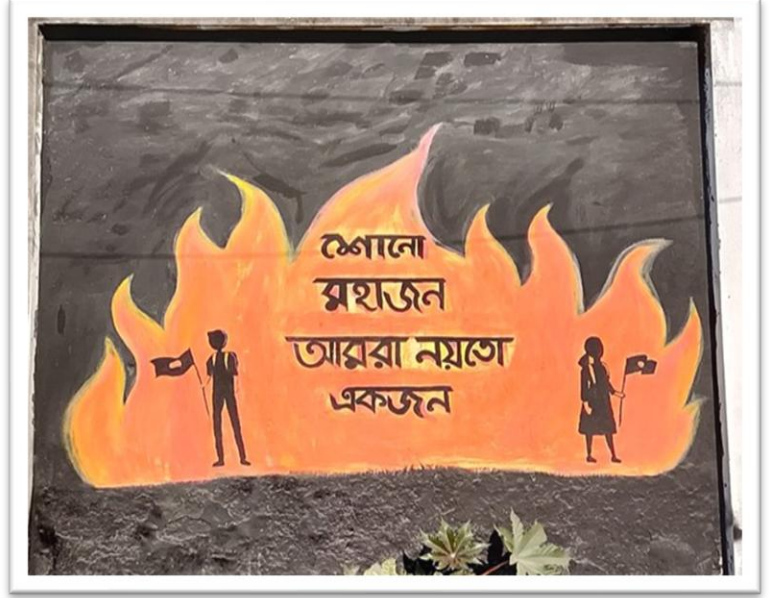 শোনো
মহাজন
আমরা নয়তো
একজন